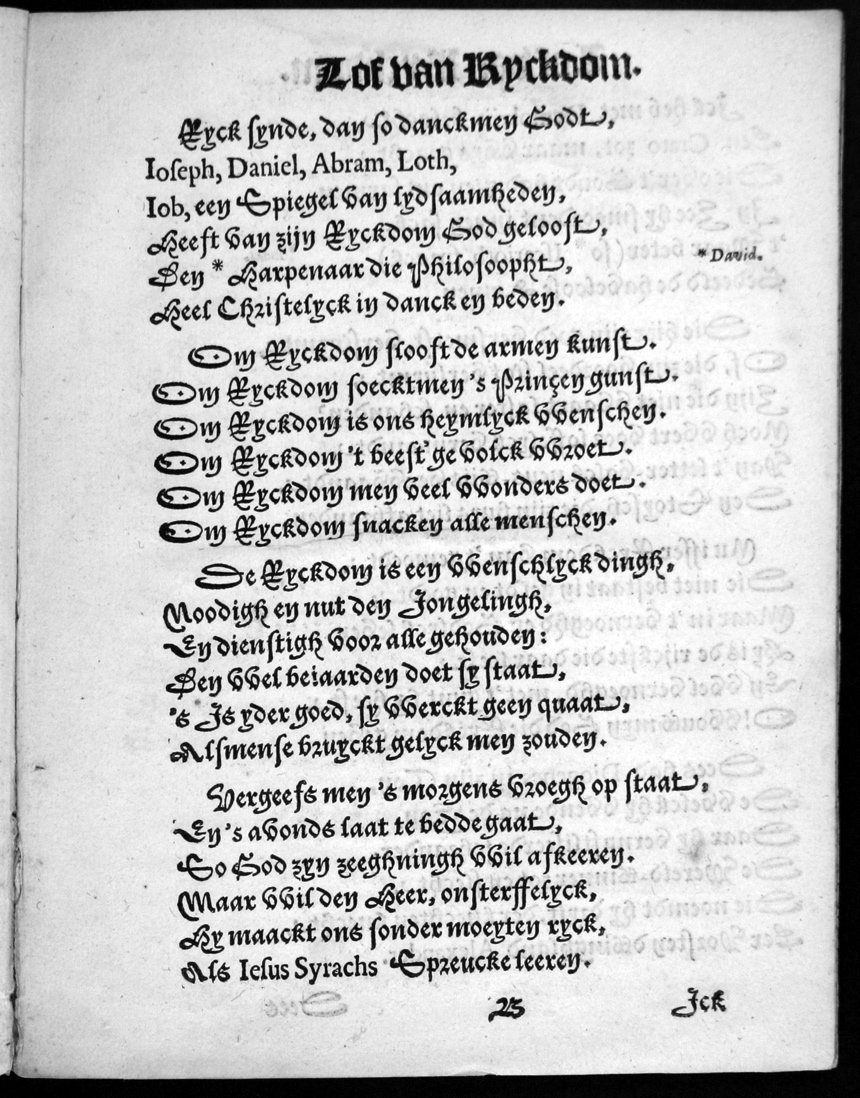 Lof van Ryckdom.
Ryck synde, dan so danckmen Godt,
Ioseph, Daniel, Abram, Loth,
Iob, een Spiegel van lydsaamheden,
Heeft van zijn Ryckdom God gelooft,
Den * Harpenaar die Philosoopht,
* David.
Heel Christelyck in danck en beden.
Om Ryckdom slooft de armen kunst.
Om Ryckdom soecktmen 's Prinçen gunst.
Om Ryckdom is ons heymlyck vvenschen.
Om Ryckdom 't beest'ge volck vvroet.
Om Ryckdom men veel vvonders doet.
Om Ryckdom snacken alle menschen.
De Ryckdom is een vvenschlyck dingh,
Noodigh en nut den Jongelingh,
En dienstigh voor alle gehouden:
Den vvel bejaarden doet sy staat,
's Is yder goed, sy vverckt geen quaat,
Alsmense bruyckt gelyck men zouden.
Vergeefs men 's morgens vroegh op staat,
En 's avonds laat te bedde gaat,
So God zyn zeeghningh vvil afkeeren.
Maar vvil den Heer, onsterffelyck,
Hy maackt ons sonder moeyten ryck,
Als Iesus Syrachs Spreucke leeren.
Ick